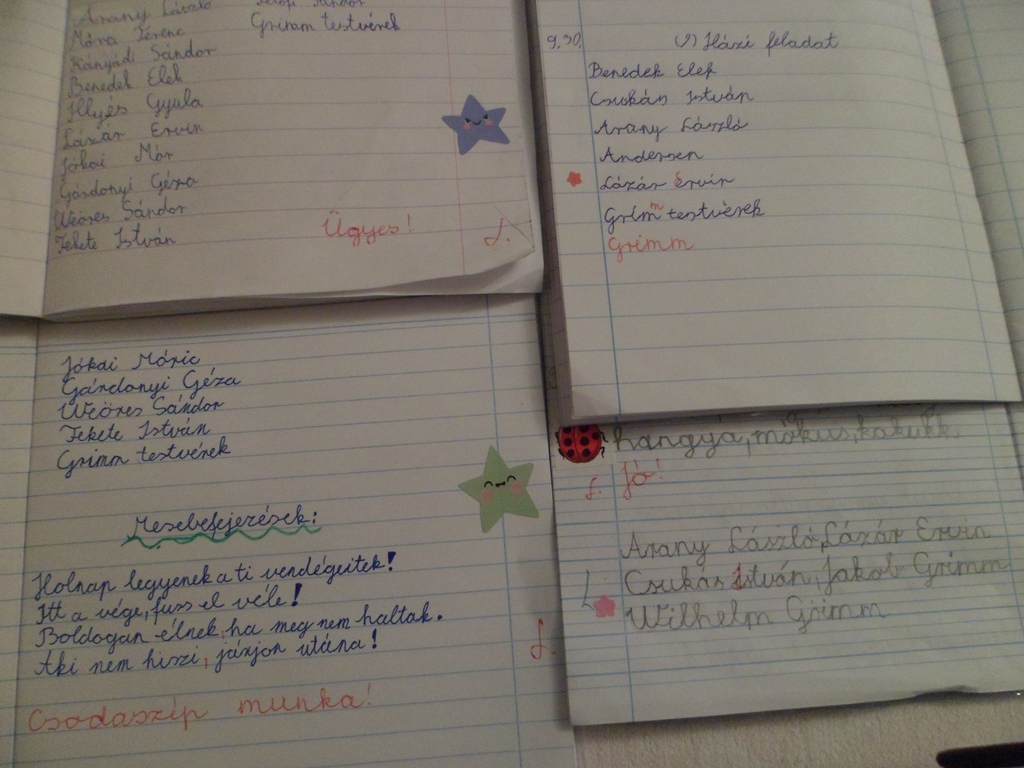 Arany László
Móra Ferenc
Kányádi Sándor
Benedek Elek
Illyés Gyula
Lázár Ervin
Jókai Mór
Gárdonyi Géza
Weöres Sándor
Fekete István
Sándor
Grimm testvérek
Ügyes!
L.
9.30.
Házi feladat
Benedek Elek
Csukás István
Arany László
Andersen
Lázár Ervin
Grimm testvérek
Grimm
Jókai Móric
Gárdonyi Géza
Weöres Sándor
Fekete István
Grimm testvérek
Mesebefejezések:
Holnap legyenek a ti vendégeitek!
Itt a vége, fuss el véle!
Boldogan élnek, ha meg nem haltak.
Aki nem hiszi, járjon utána!
L.
Csodaszép munka!
hangya, mókus, kakukk
L. Jó!
Arany László, Lázár Ervin
L. Csukás István, Jakob Grimm
Wilhelm Grimm